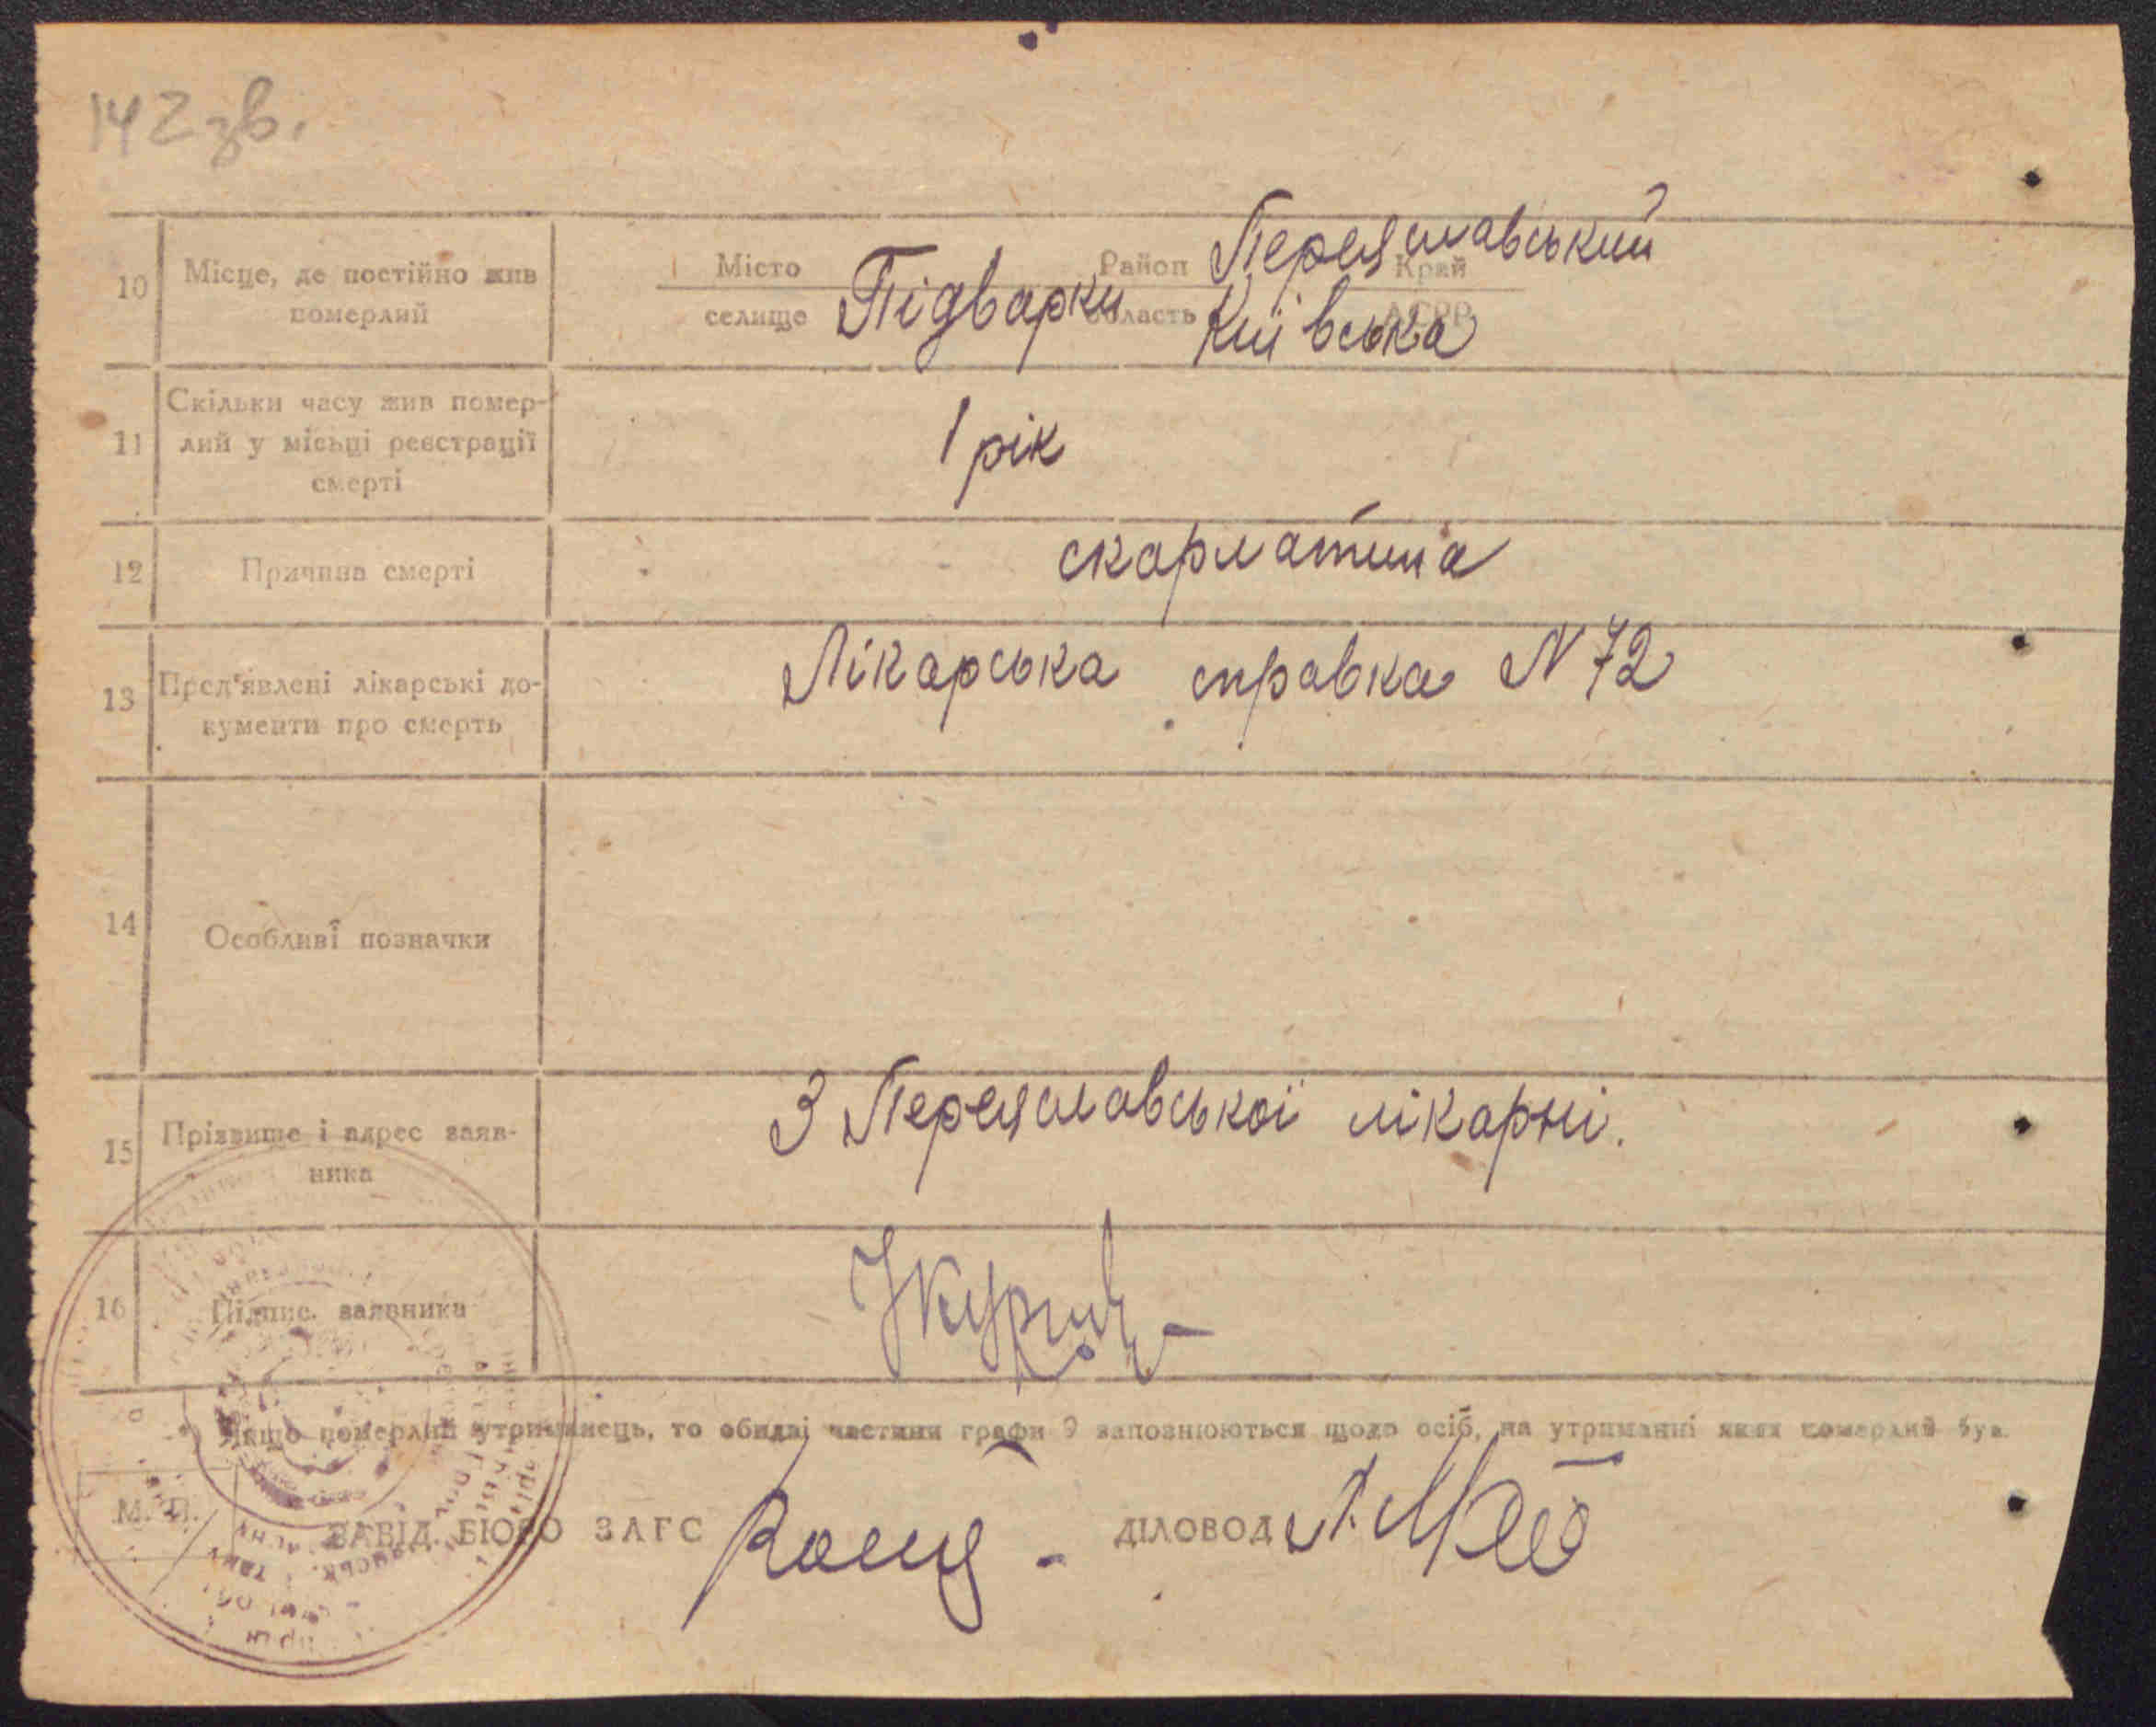 142 зв.
10 Місце, де постійно жив померлий
Місто селище Підварки Район Переяславський Край
область Київська АСРР
11 Скільки часу жив помер-
лий у місьці реєстрації
смерті
1 рік
12 Причина смерті скарлатина
13 Пред'явлені лікарські до-
кументи про смерть
Лікарська справка N 72
14 Особливі позначки
15 Прізвище і адрес заяв-
ника
З Переяславської лікарні.
16 Підпис заявника
Якщо померлий утриманець, то обидві частини графи 9 запознюються щодо осіб, на утриманні яких померлий був
М. П.
ЗАВІД. БЮРО ЗАГС ДІЛОВОД